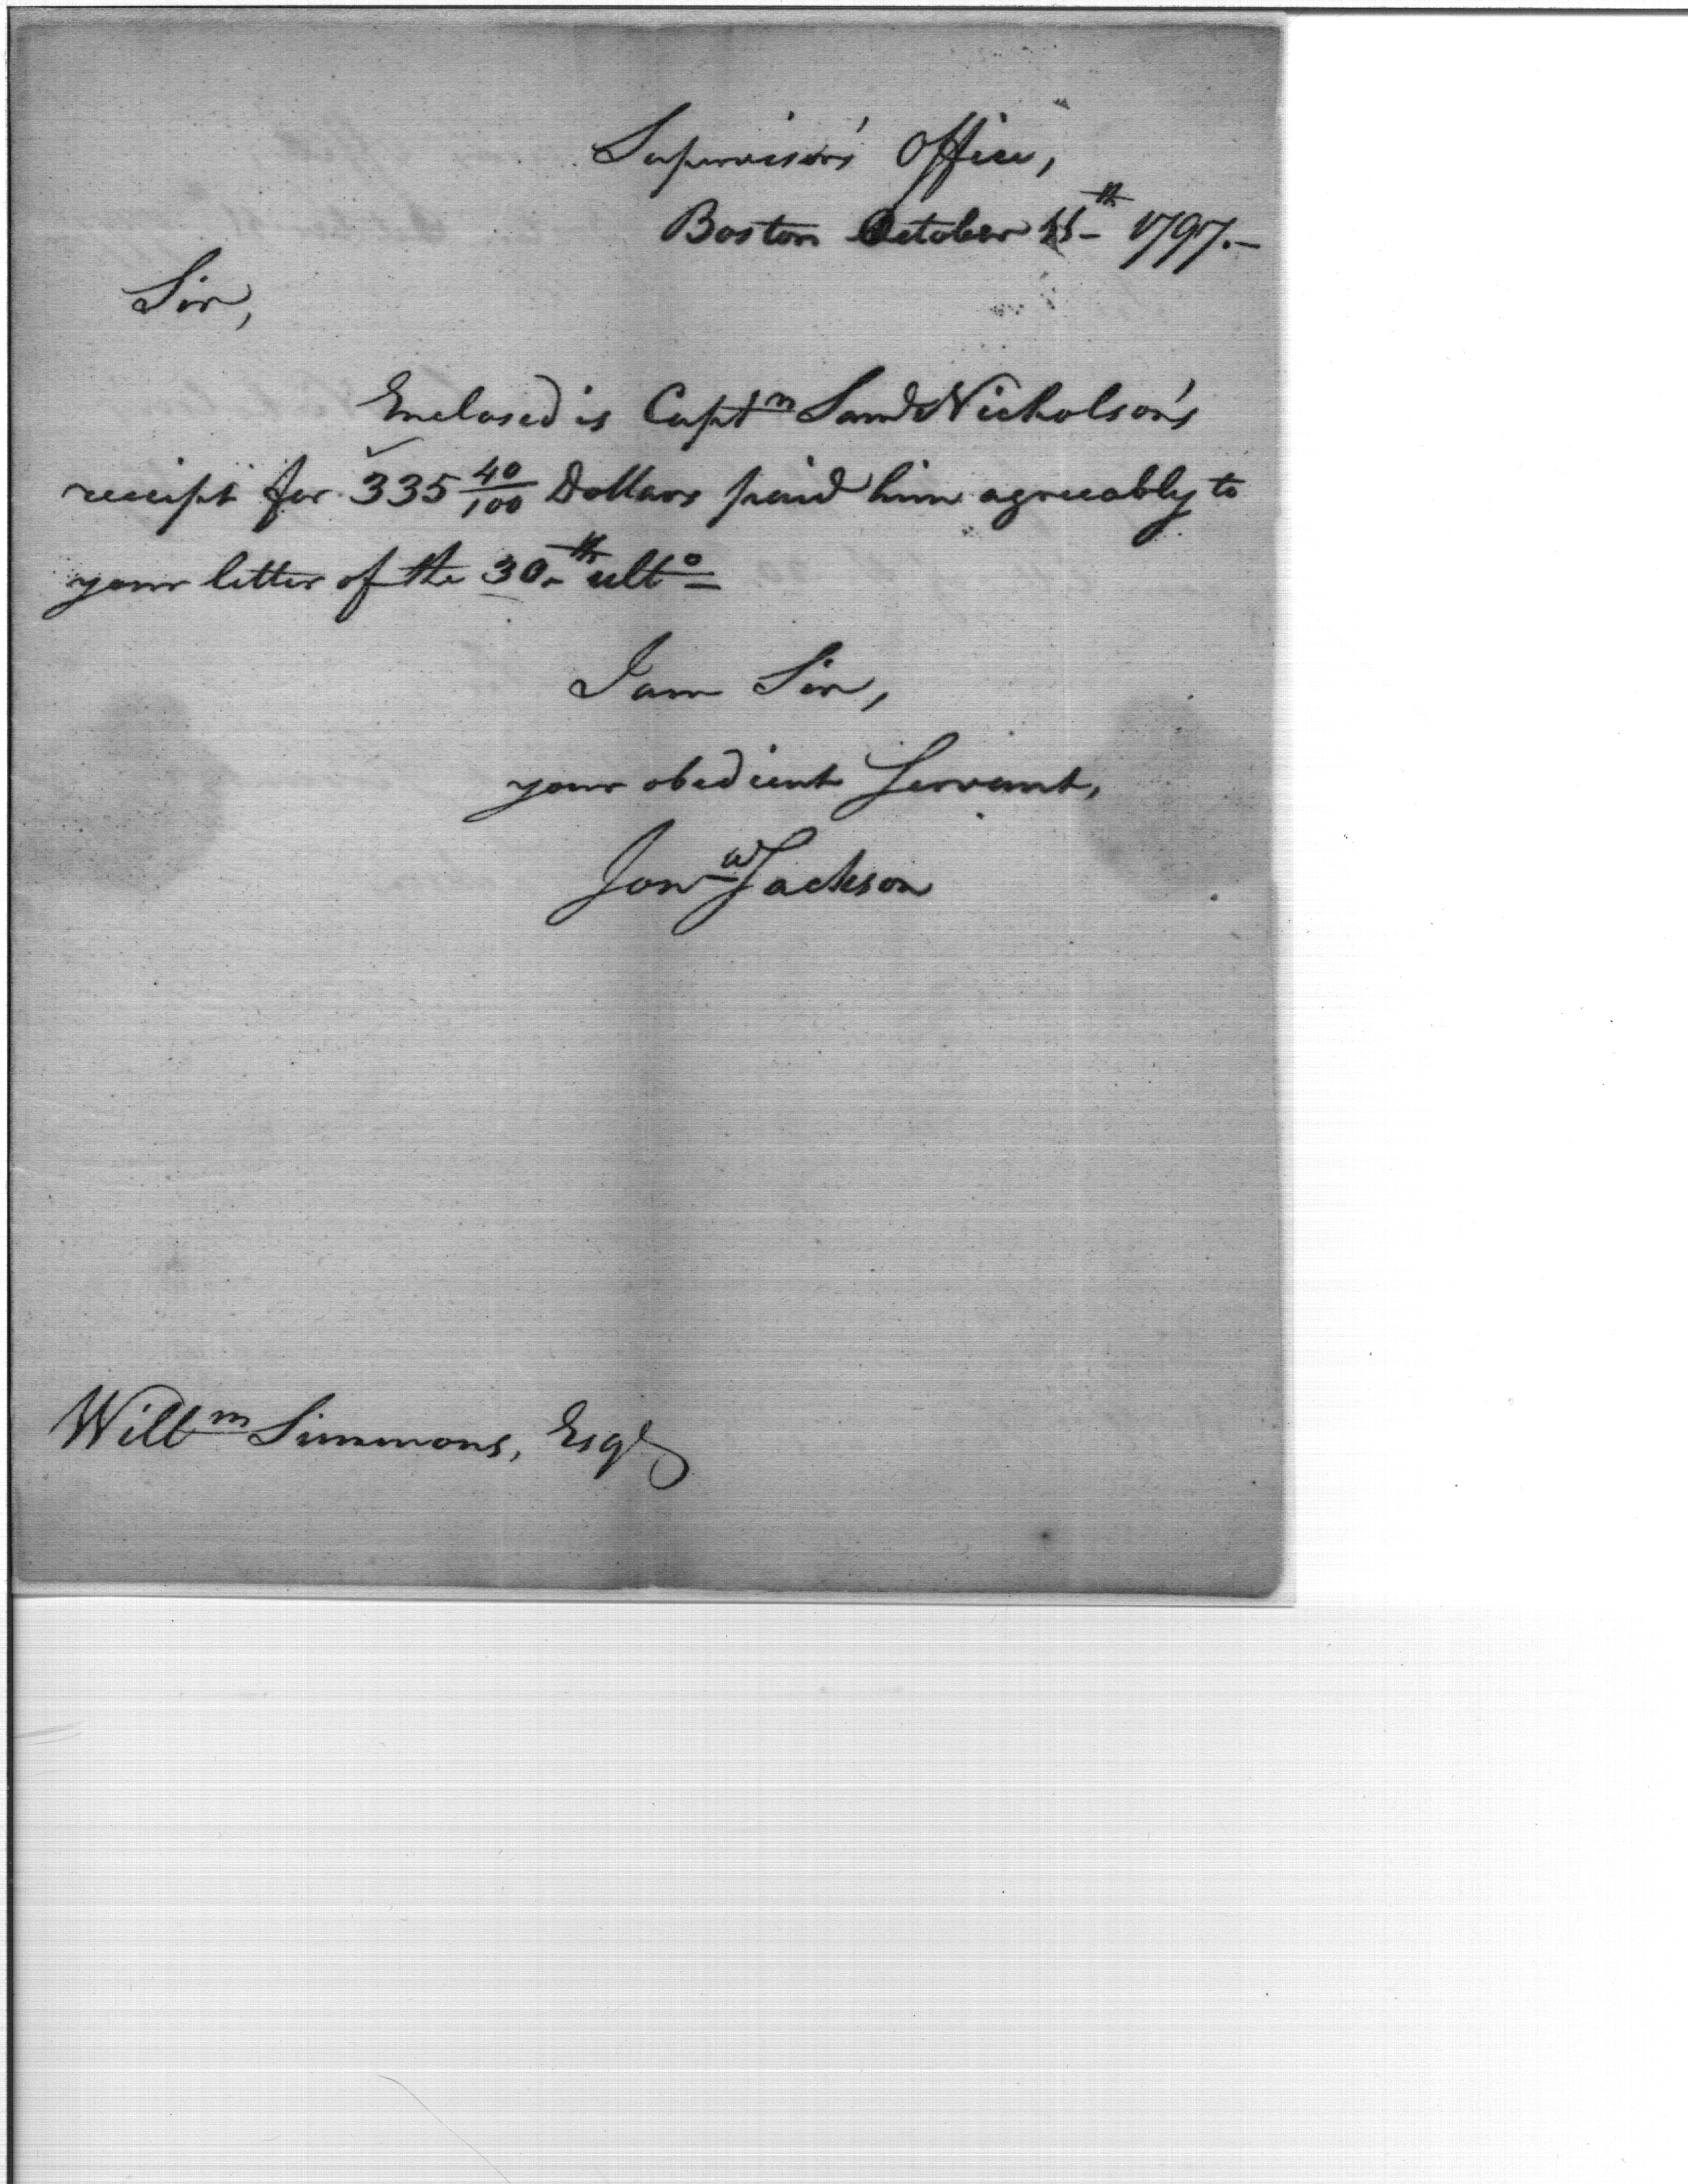 Supervisor's Office,
Boston October 11th 1797.-
Sir,
Enclosed is Captn Saml Nicholson's
receipt for 335 40/100 Dollars paid him agreeably to
your letter of the 30th ulto
I am Sir,
your obedient Servant,
Jona Jackson
Willm Simmons, Esqr